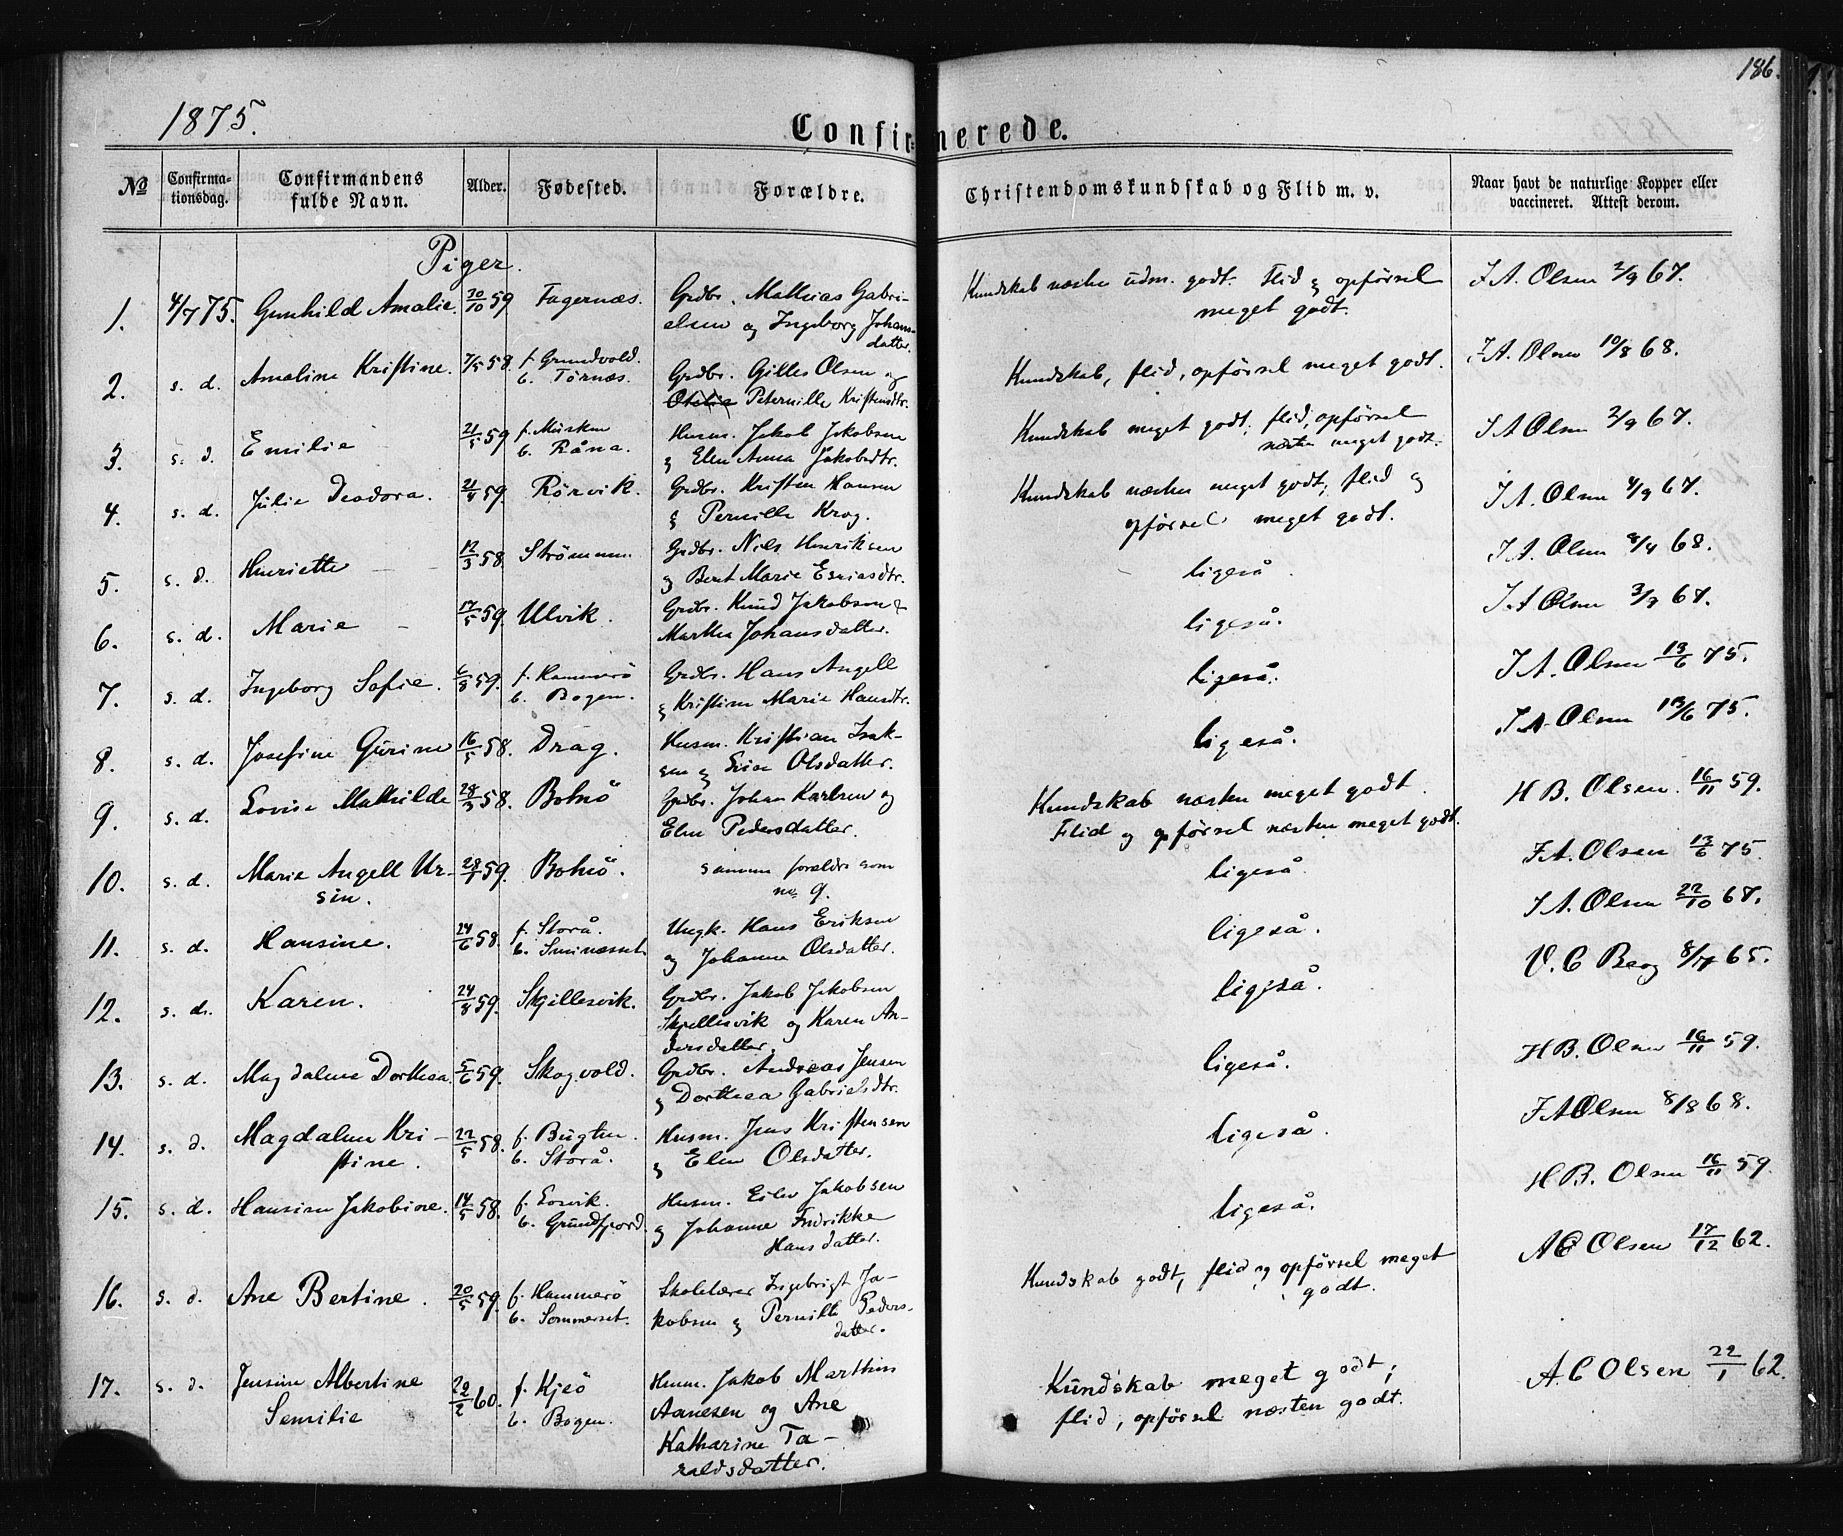 186.
1875.
Confirmerede.
No
Confirma-
tionsdag.
Confirmandens
fulde Navn.
Alder.
Fødested.
Forældre.
Christendomskundskab og Flid m. v.
Naar havt de naturlige Kopper eller
vaccineret. Attest derom.
Piger.
1. 4/7 75. Gunhild Amalie. 30/10 59 Fagernæs. Grdbr. Mathias Gabri-
elsen og Ingeborg Johans-
datter.
Kundskab næsten udm. godt. Flid og opförsel
meget godt.
J. A. Olsen 2/9 67.
2. s. d. Amaline Kristine. 7/5 58. f. Grundvold.
b. Törnæs.
Grdbr. Gilles Olsen og
Petternille Kristensdtr.
Kundskab, flid, opförsel meget godt.
J. A. Olsen 10/8 68.
3. s. d. Emilie 21/5 59 f. Musken
b. Råna.
Husm. Jakob Jakobsen
og Elen Anna Jakobsdtr.
Kundskab meget godt; flid, opförsel
næsten meget godt.
J A Olsen 2/9 67.
4. s. d. Julie Deodora. 21/4 59. Rörvik. Grdbr. Kristen Hansen
og Pernille Krog.
Kundskab næsten meget godt; flid og
opförsel meget godt.
J. A. Olsen 4/9 67.
5. s. d. Henriette 12/3 58 Strömmen Grdbr. Nils Henriksen
og Beret Marie Esaiasdtr.
ligeså.
J. A. Olsen 8/4 68.
6. s. d. Marie 17/5 59. Ulvik. Grdbr. Knud Jakobsen &
Marthe Johansdatter.
ligeså.
J. A Olsen 3/9 67.
7. s. d. Ingeborg Sofie. 6/8 59. f. Hammerö
b. Bogen.
Grdbr. Hans Angell
og Kristine Marie Hansdtr.
ligeså.
J A. Olsen 13/6 75.
8. s. d. Josefine Gurine 16/5 58. Drag. Husm. Kristian Isak-
sen og Lise Olsdatter.
ligeså.
J A Olsen 13/6 75.
9. s. d. Lovise Mathilde 28/3 58. Botnö Grdbr. Johan Karlsen og
Elen Pedersdatter.
Kundskab næsten meget godt.
Flid og opförsel næsten meget godt.
H B. Olsen. 16/11 59.
10. s. d. Marie Angell Ur-
sin.
28/7 59. Botnö. samme forældre som
no 9.
ligeså.
J. A. Olsen 13/6 75.
11. s. d. Hansine. 24/6 58. f. Storå.
b. Smineset.
Ungk. Hans Eriksen
og Johanna Olsdatter.
ligeså.
J A. Olsen 22/10 67.
12. s. d. Karen. 24/8 59. Skjillesvik. Grdbr. Jakob Jakobsen
Skjellesvik og Karen An-
dersdatter.
ligeså.
V. C Berg 8/7 65.
13. s. d. Magdalene Dorthea. 5/6 59. Skogvold. Grdbr. Andreas Jensen
og Dorthea Gabrielsdtr.
ligeså.
H B. Olsen 16/11 59.
14. s. d. Magdalene Kri-
stine.
22/5 58. f. Bugten.
b. Storå.
Husm. Jens Kristensen
og Elen Olsdatter.
ligeså.
J A Olsen 8/8 68.
15. s. d. Hansine Jakobine. 14/5 58. f. Losvik.
b. Grundfjord.
Husm. Eilev Jakobsen
og Johanne Fredrikke
Hansdatter.
ligeså.
H B. Olsen 16/11 59.
16. s. d. Ane Bertine. 20/5 59. f. Hammerö
b. Sommerset.
Skolelærer Ingebrigt Ja-
kobsen og Pernille Peders-
datter.
Kundskab godt, flid og opförsel meget
godt.
A C Olsen 17/12 62.
17. s. d. Jensine Albertine
Semilie
29/2 60. f. Kjeö
b. Bogen.
Husm. Jakob Marthin
Aanesen og Ane
Katharine Ta-
raldsdatter.
Kundskab meget godt;
flid, opförsel næsten godt.
A. C Olsen 22/1 62.